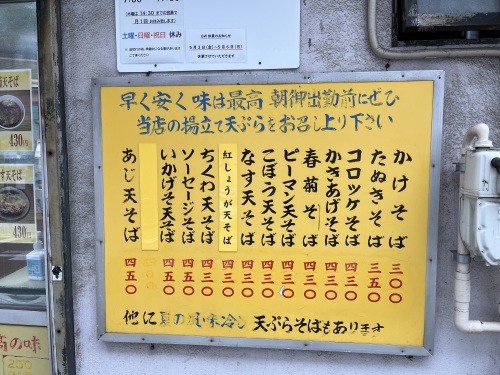 土曜・日曜・祝日 休み
休業させていただきます
早く安く味は最高 朝御出勤前にぜひ
当店の揚立て天ぷらをお召し上り下さい
かけそば 三〇〇
たぬきそば 三五〇
コロッケそば 四三〇
かきあげそば 四三〇
春菊そば 四三〇
ピーマン天そば 四三〇
ごぼう天そば 四三〇
なす天そば 四三〇
紅しょうが天そば 四三〇
ちくわ天そば 四三〇
ソーセージそば 四三〇
いかげそ天そば 四五〇
あじ天そば 四五〇
他に夏の風味冷し 天ぷらそばもあります
天そば
430円
す天そば
430円
高の味